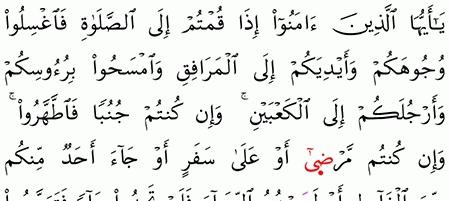 يَـٰٓأَيُّهَا ٱلَّذِينَ ءَامَنُوٓا۟ إِذَا قُمْتُمْ إِلَى ٱلصَّلَوٰةِ فَٱغْسِلُوا۟
وُجُوهَكُمْ وَأَيْدِيَكُمْ إِلَى ٱلْمَرَافِقِ وَٱمْسَحُوا۟ بِرُءُوسِكُمْ
وَأَرْجُلَكُمْ إِلَى ٱلْكَعْبَيْنِ ۚ وَإِن كُنتُمْ جُنُبًا فَٱطَّهَّرُوا۟ ۚ
وَإِن كُنتُم مَّرْضَىٰٓ أَوْ عَلَىٰ سَفَرٍ أَوْ جَآءَ أَحَدٌ مِّنكُم